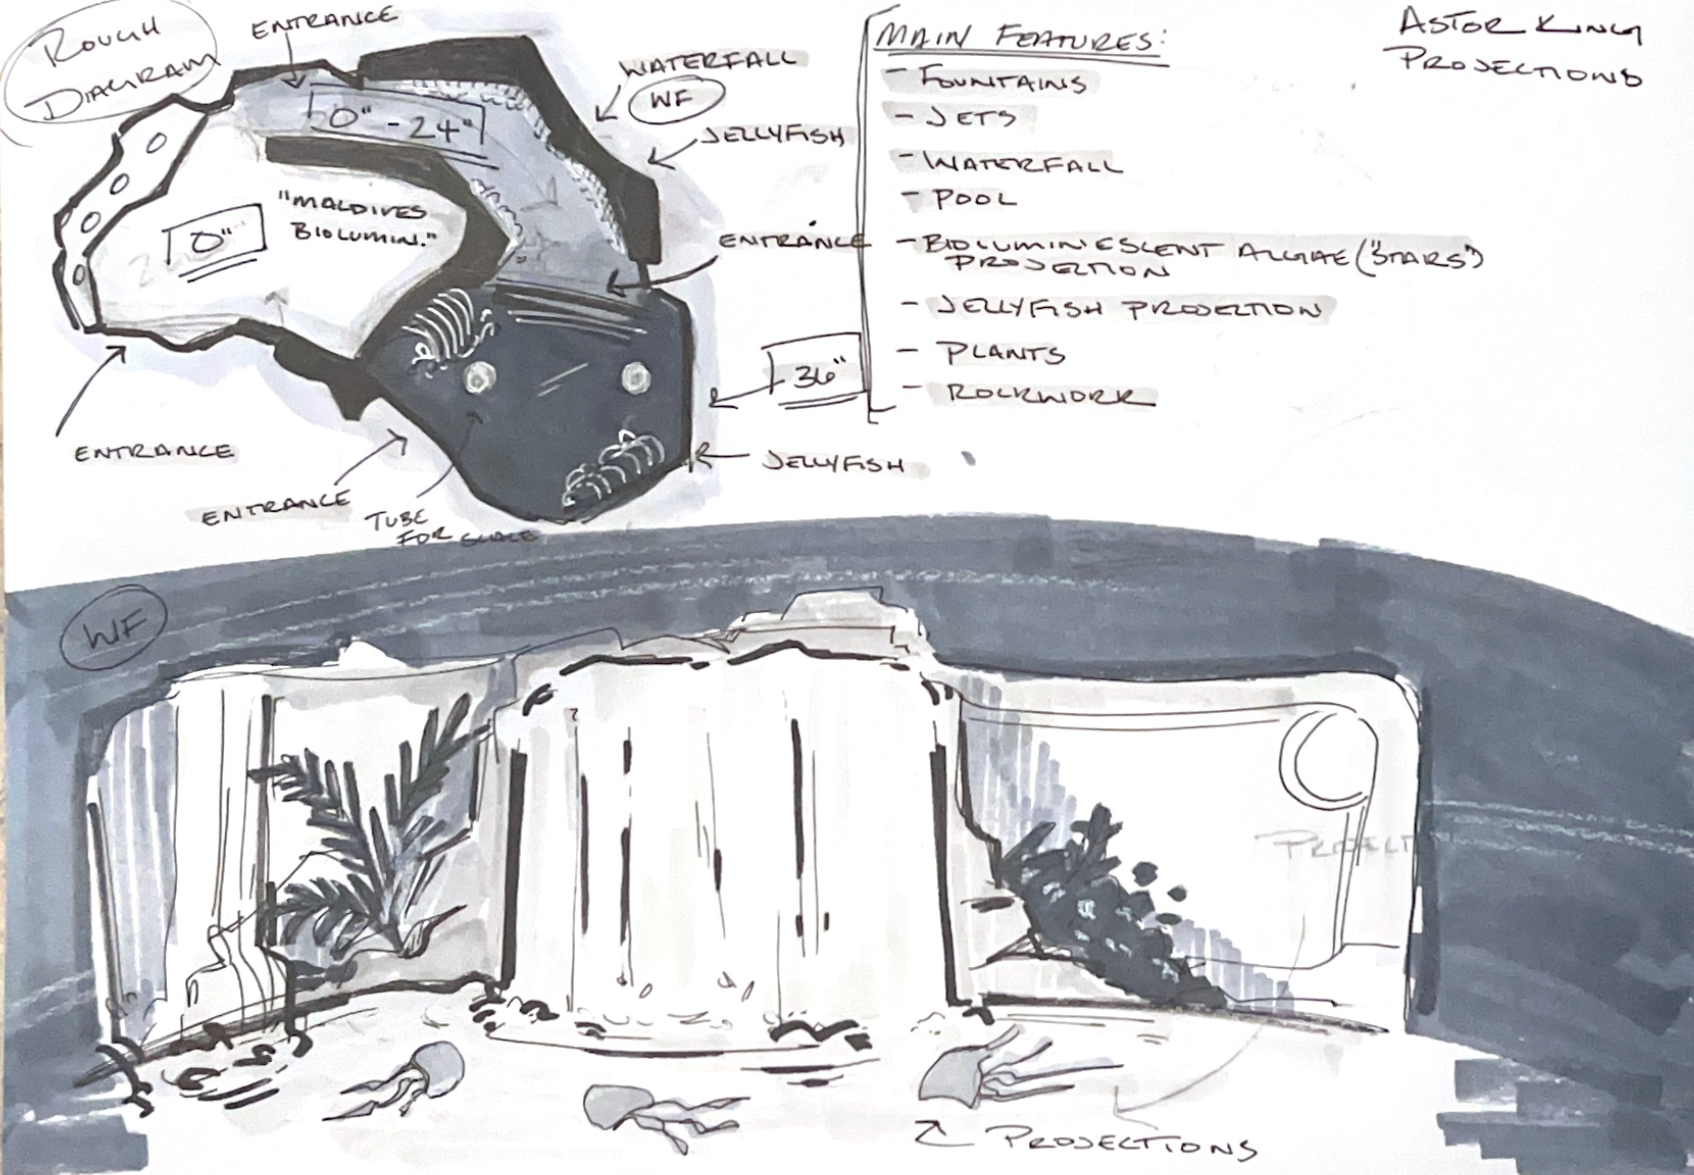 ROUGH
DIAGRAM
ENTRANCE
WATERFALL
WF
JELLYFISH
0" - 24"
"MALDIVES
BIOLUMIN."
0"
ENTRANCE
36"
JELLYFISH
ENTRANCE
ENTRANCE
TUBE
FOR SCALE
MAIN FEATURES:
- FOUNTAINS
- JETS
- WATERFALL
- POOL
- BIOLUMINESCENT ALGAE ("STARS")
PROJECTION
- JELLYFISH PROJECTION
- PLANTS
- ROCKWORK
PROJECTIONS
WF
PROJECT
PROJECTIONS